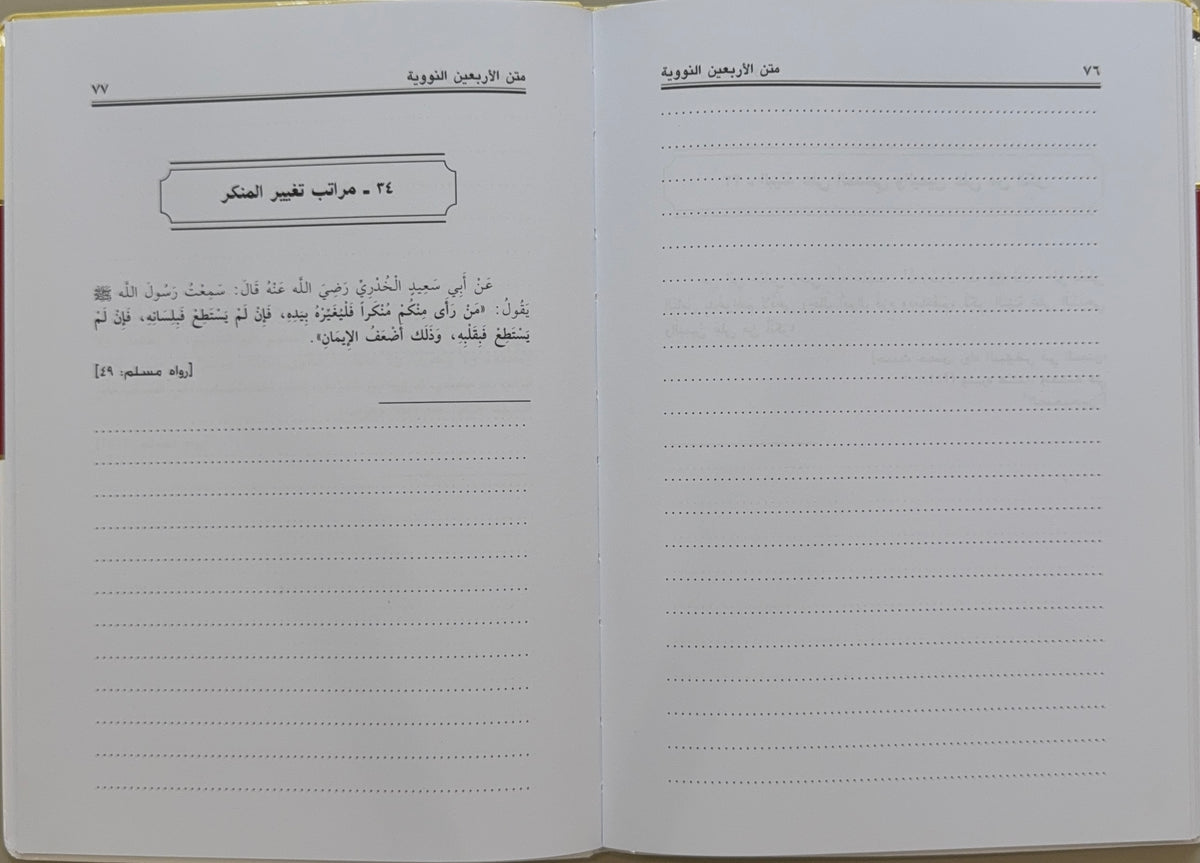 ٧٦
متن الأربعين النووية
متن الأربعين النووية
٧٧
٣٤ - مراتب تغيير المنكر
عَنْ أَبِي سَعِيدٍ الْخُدْرِيِّ رَضِيَ اللَّه عَنْهُ قَالَ: سَمِعْتُ رَسُولَ اللَّه ﷺ
يَقُولُ: «مَنْ رَأَى مِنْكُمْ مُنْكَراً فَلْيُغَيِّرْهُ بِيَدِهِ، فَإِنْ لَمْ يَسْتَطِعْ فَبِلِسَانِهِ، فَإِنْ لَمْ
يَسْتَطِعْ فَبِقَلْبِهِ، وَذَلَك أَضْعَفُ الإِيمَانِ».
[رواه مسلم: ٤٩]